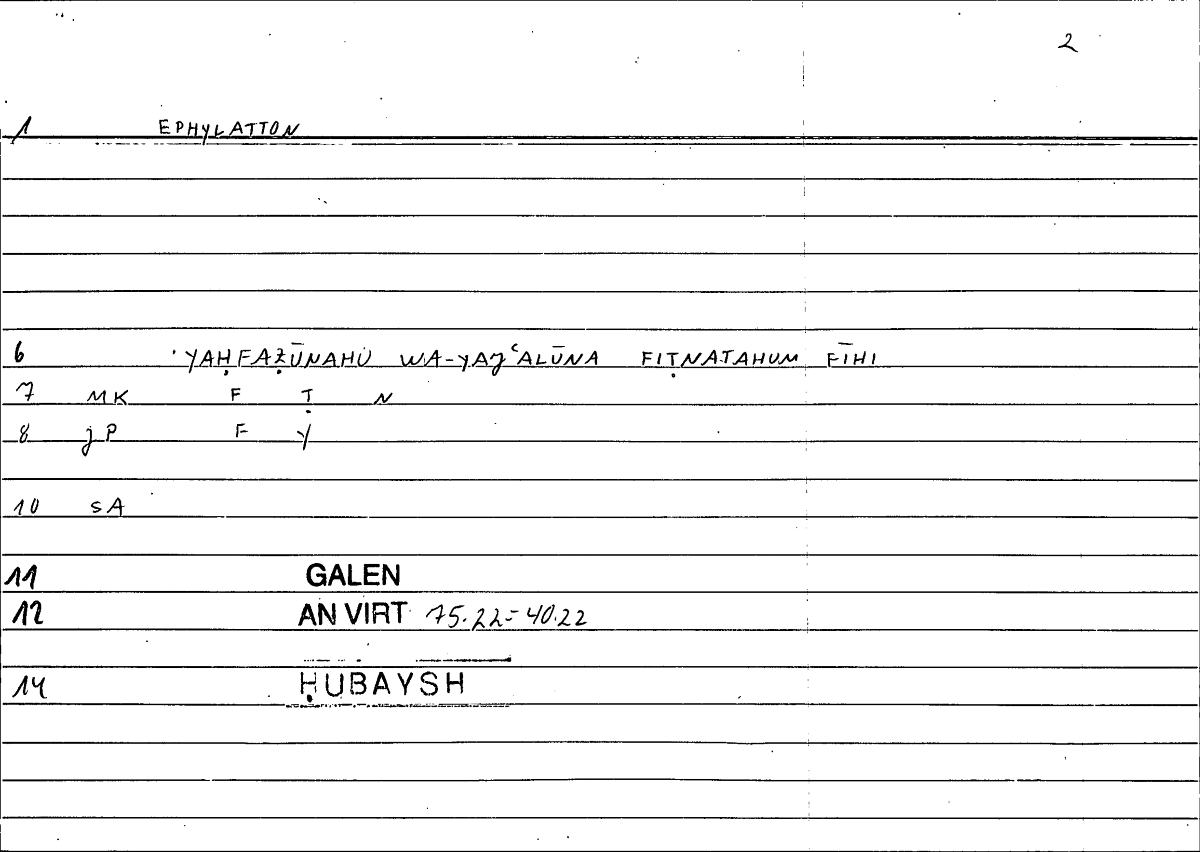 2
1 EPHYLATTON
6 YAḤFAẒŪNAHŪ WA-YAJʿALŪNA FIṬNATAHUM FĪHI
7 MK F Ṭ N
8 jP F Y
10 SA
11 GALEN
12 AN VIRT 75.22=40.22
14 ḤUBAYSH